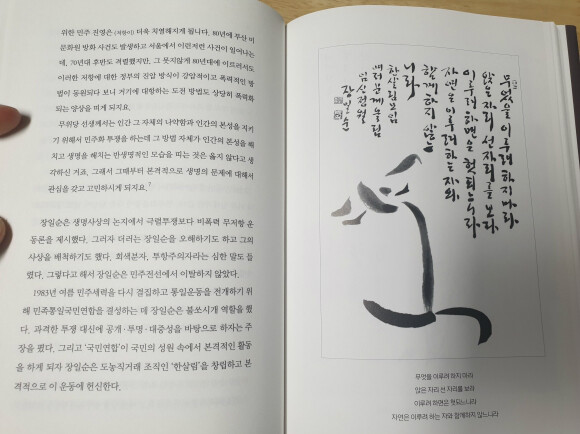 위한 민주 진영은 (저항이) 더욱 치열해지게 됩니다. 80년에 부산 미
문화원 방화 사건도 발생하고 서울에서 이런저런 사건이 일어나는
데, 70년대 후반도 격렬했지만, 그 못지않게 80년대에 이르러서도
이러한 저항에 대한 정부의 진압 방식이 강압적이고 폭력적인 방
법이 동원되다 보니 거기에 대항하는 도전 방법도 상당히 폭력화
되는 양상을 띠게 되지요.
무위당 선생께서는 인간 그 자체의 나약함과 인간의 본성을 지키
기 위해서 민주화 투쟁을 하는데 그 방법 자체가 인간의 본성을 해
치고 생명을 해치는 반생명적인 모습을 띠는 것은 옳지 않다고 생
각하신 거죠. 그래서 그때부터 본격적으로 생명의 문제에 대해서
관심을 갖고 고민하시게 되지요.7
장일순은 생명사상의 논지에서 극렬투쟁보다 비폭력 무저항 운
동론을 제시했다. 그러자 더러는 장일순을 오해하기도 하고 그의
사상을 배척하기도 했다. 회색분자, 투항주의자라는 심한 말도 들
렸다. 그렇다고 해서 장일순은 민주전선에서 이탈하지 않았다.
1983년 여름 민주세력을 다시 결집하고 통일운동을 전개하기 위
해 민족통일국민연합을 결성하는 데 장일순은 불쏘시개 역할을 했
다. 과격한 투쟁 대신에 공개·투명·대중성을 바탕으로 하자는 주
장을 폈다. 그리고 '국민연합'이 국민의 성원 속에서 본격적인 활동
을 하게 되자 장일순은 도농직거래 조직인 '한살림'을 창립하고 본
격적으로 이 운동에 헌신한다.
무엇을 이루려 하지 마라
앉은 자리 선 자리를 보라
이루려 하면은 헛되느니라
자연은 이루려 하는 자와
함께하지 않느
니라
한살림모임
장일순
무엇을 이루려 하지 마라
앉은 자리 선 자리를 보라
이루려 하면은 헛되느니라
자연은 이루려 하는 자와 함께하지 않느니라